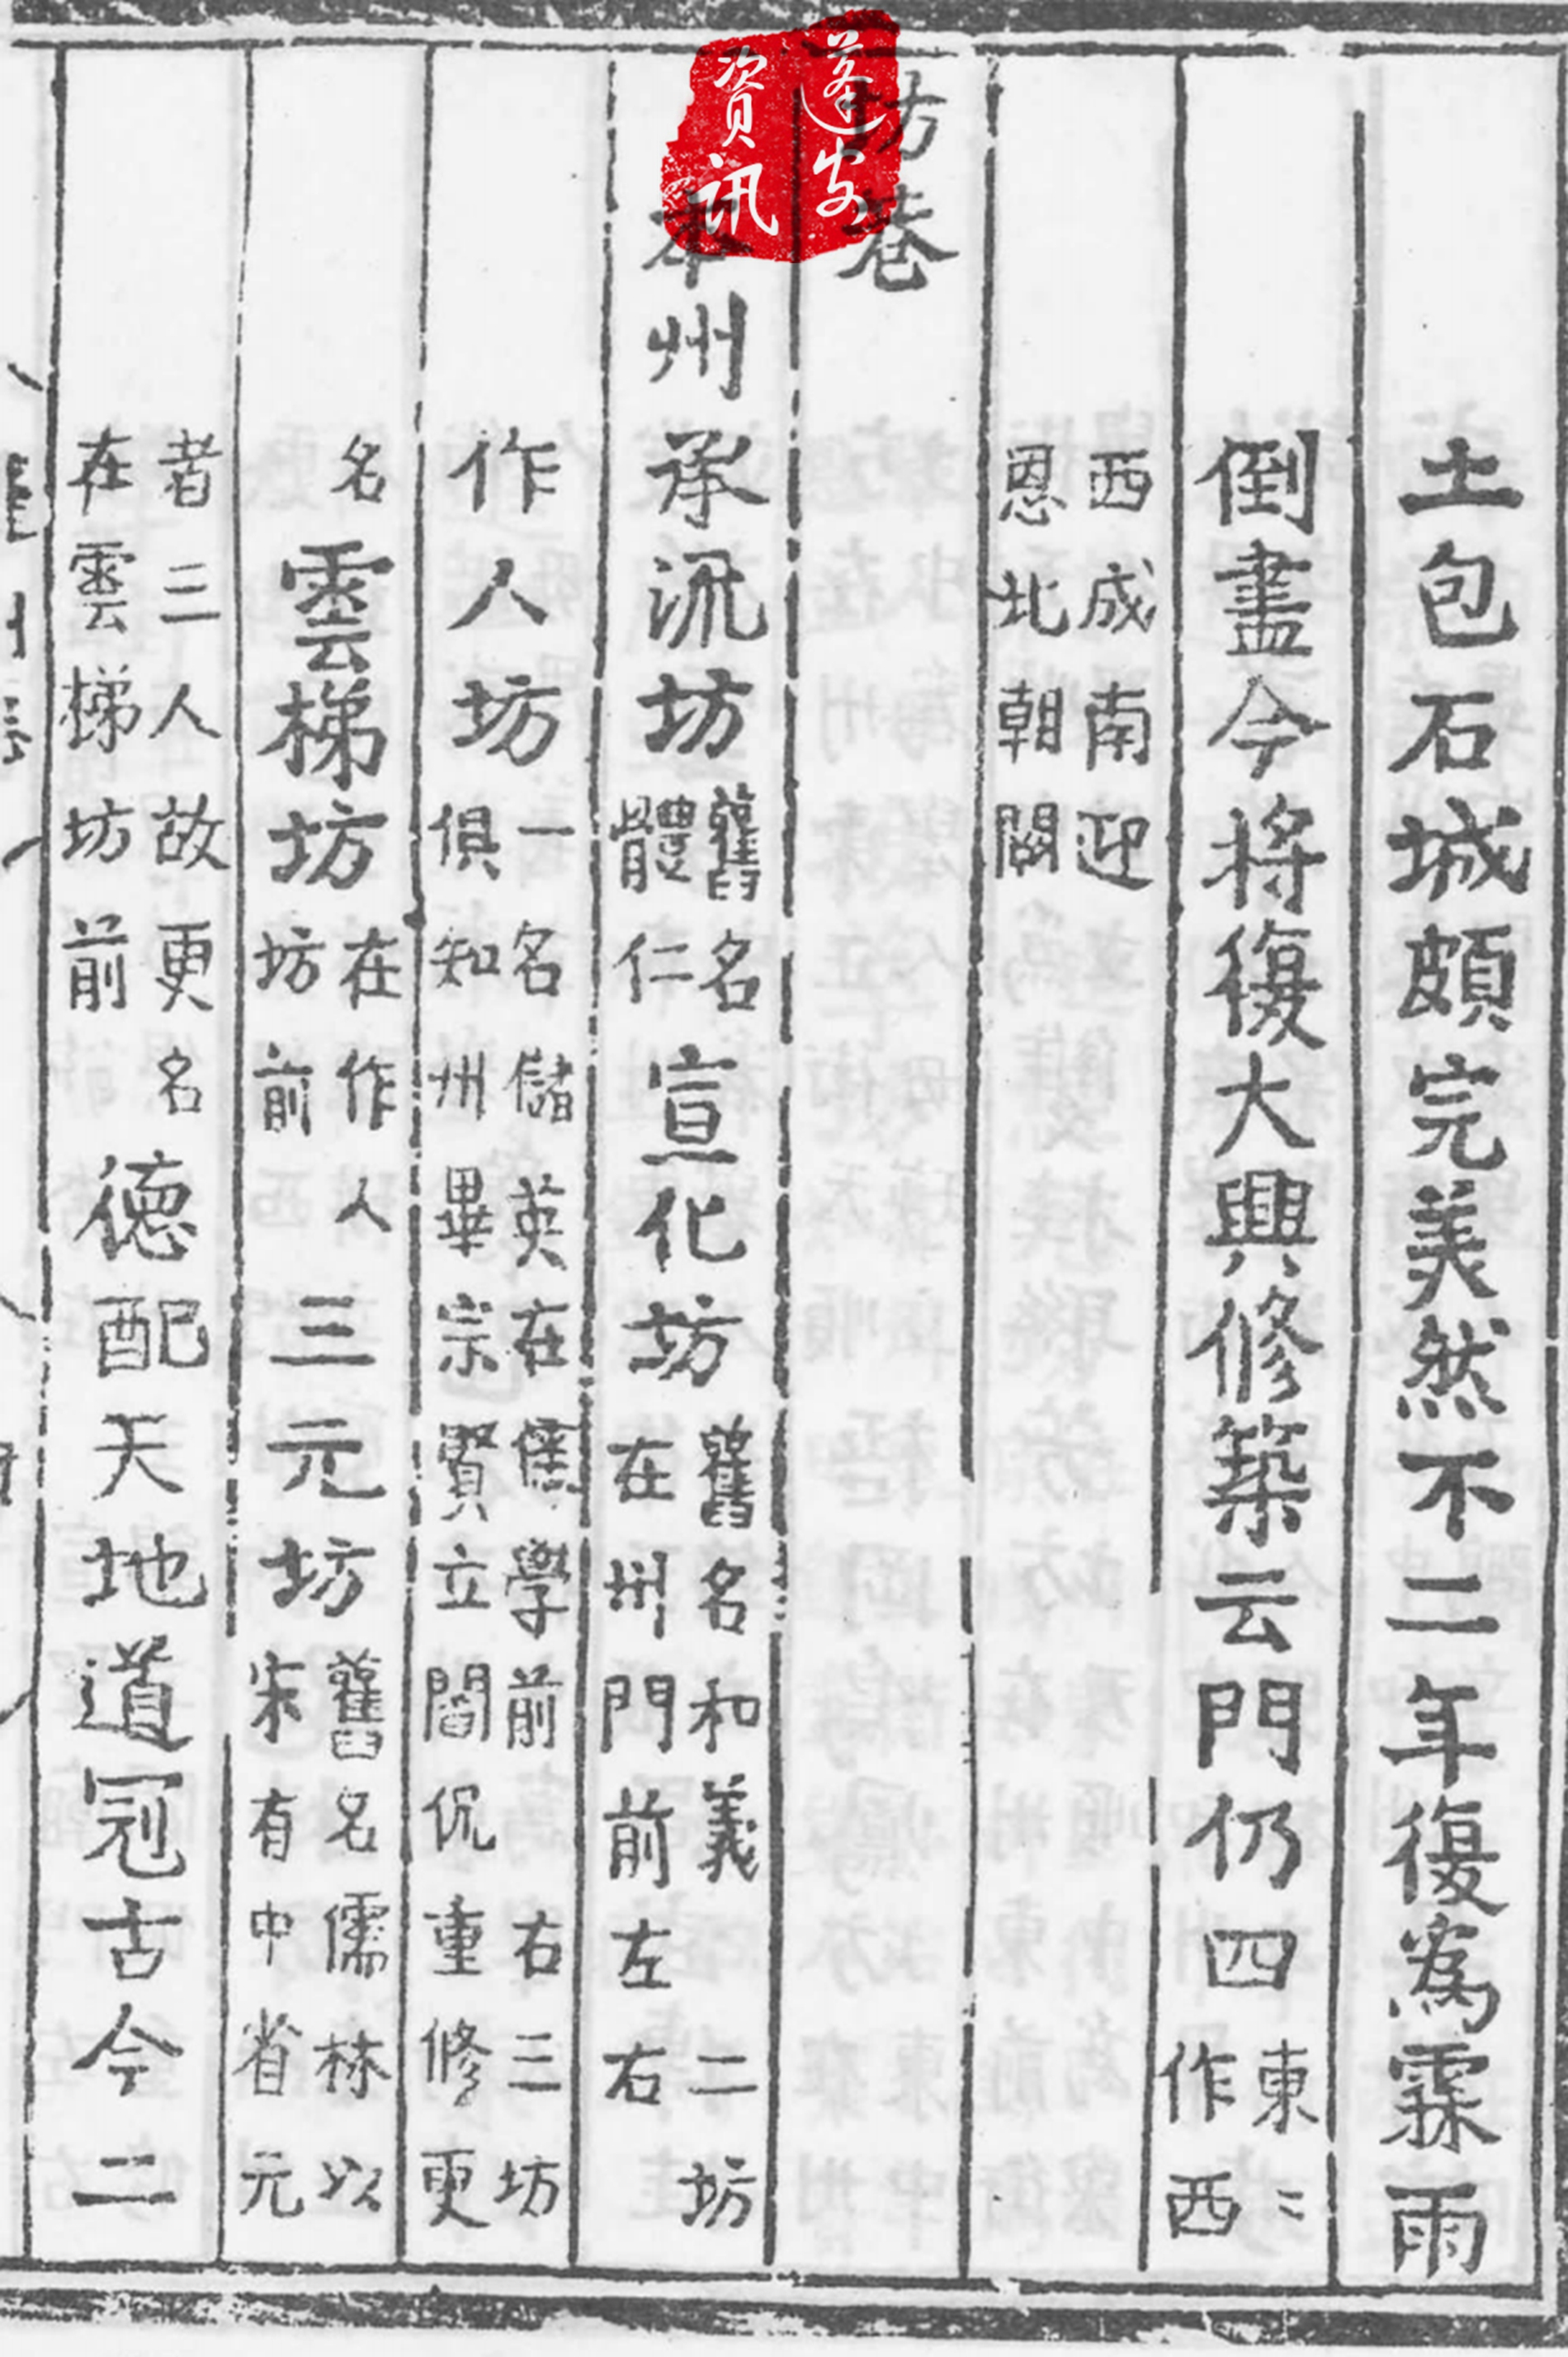 土包石城頗完美然不二年復爲霖雨
倒盡今將復大興修築云門仍四東〻作西
西成南迎恩北朝闕
坊巷
本州承流坊舊名體仁宣化坊舊名和義二坊在州門前左右
作人坊一名儲英在儒學前右三坊俱知州畢宗賢立閻侃重修更
名雲梯坊在作人坊前三元坊舊名儒林以宋有中省元
者三人故更名在雲梯坊前德配天地道冠古今二
蓬安
資訊